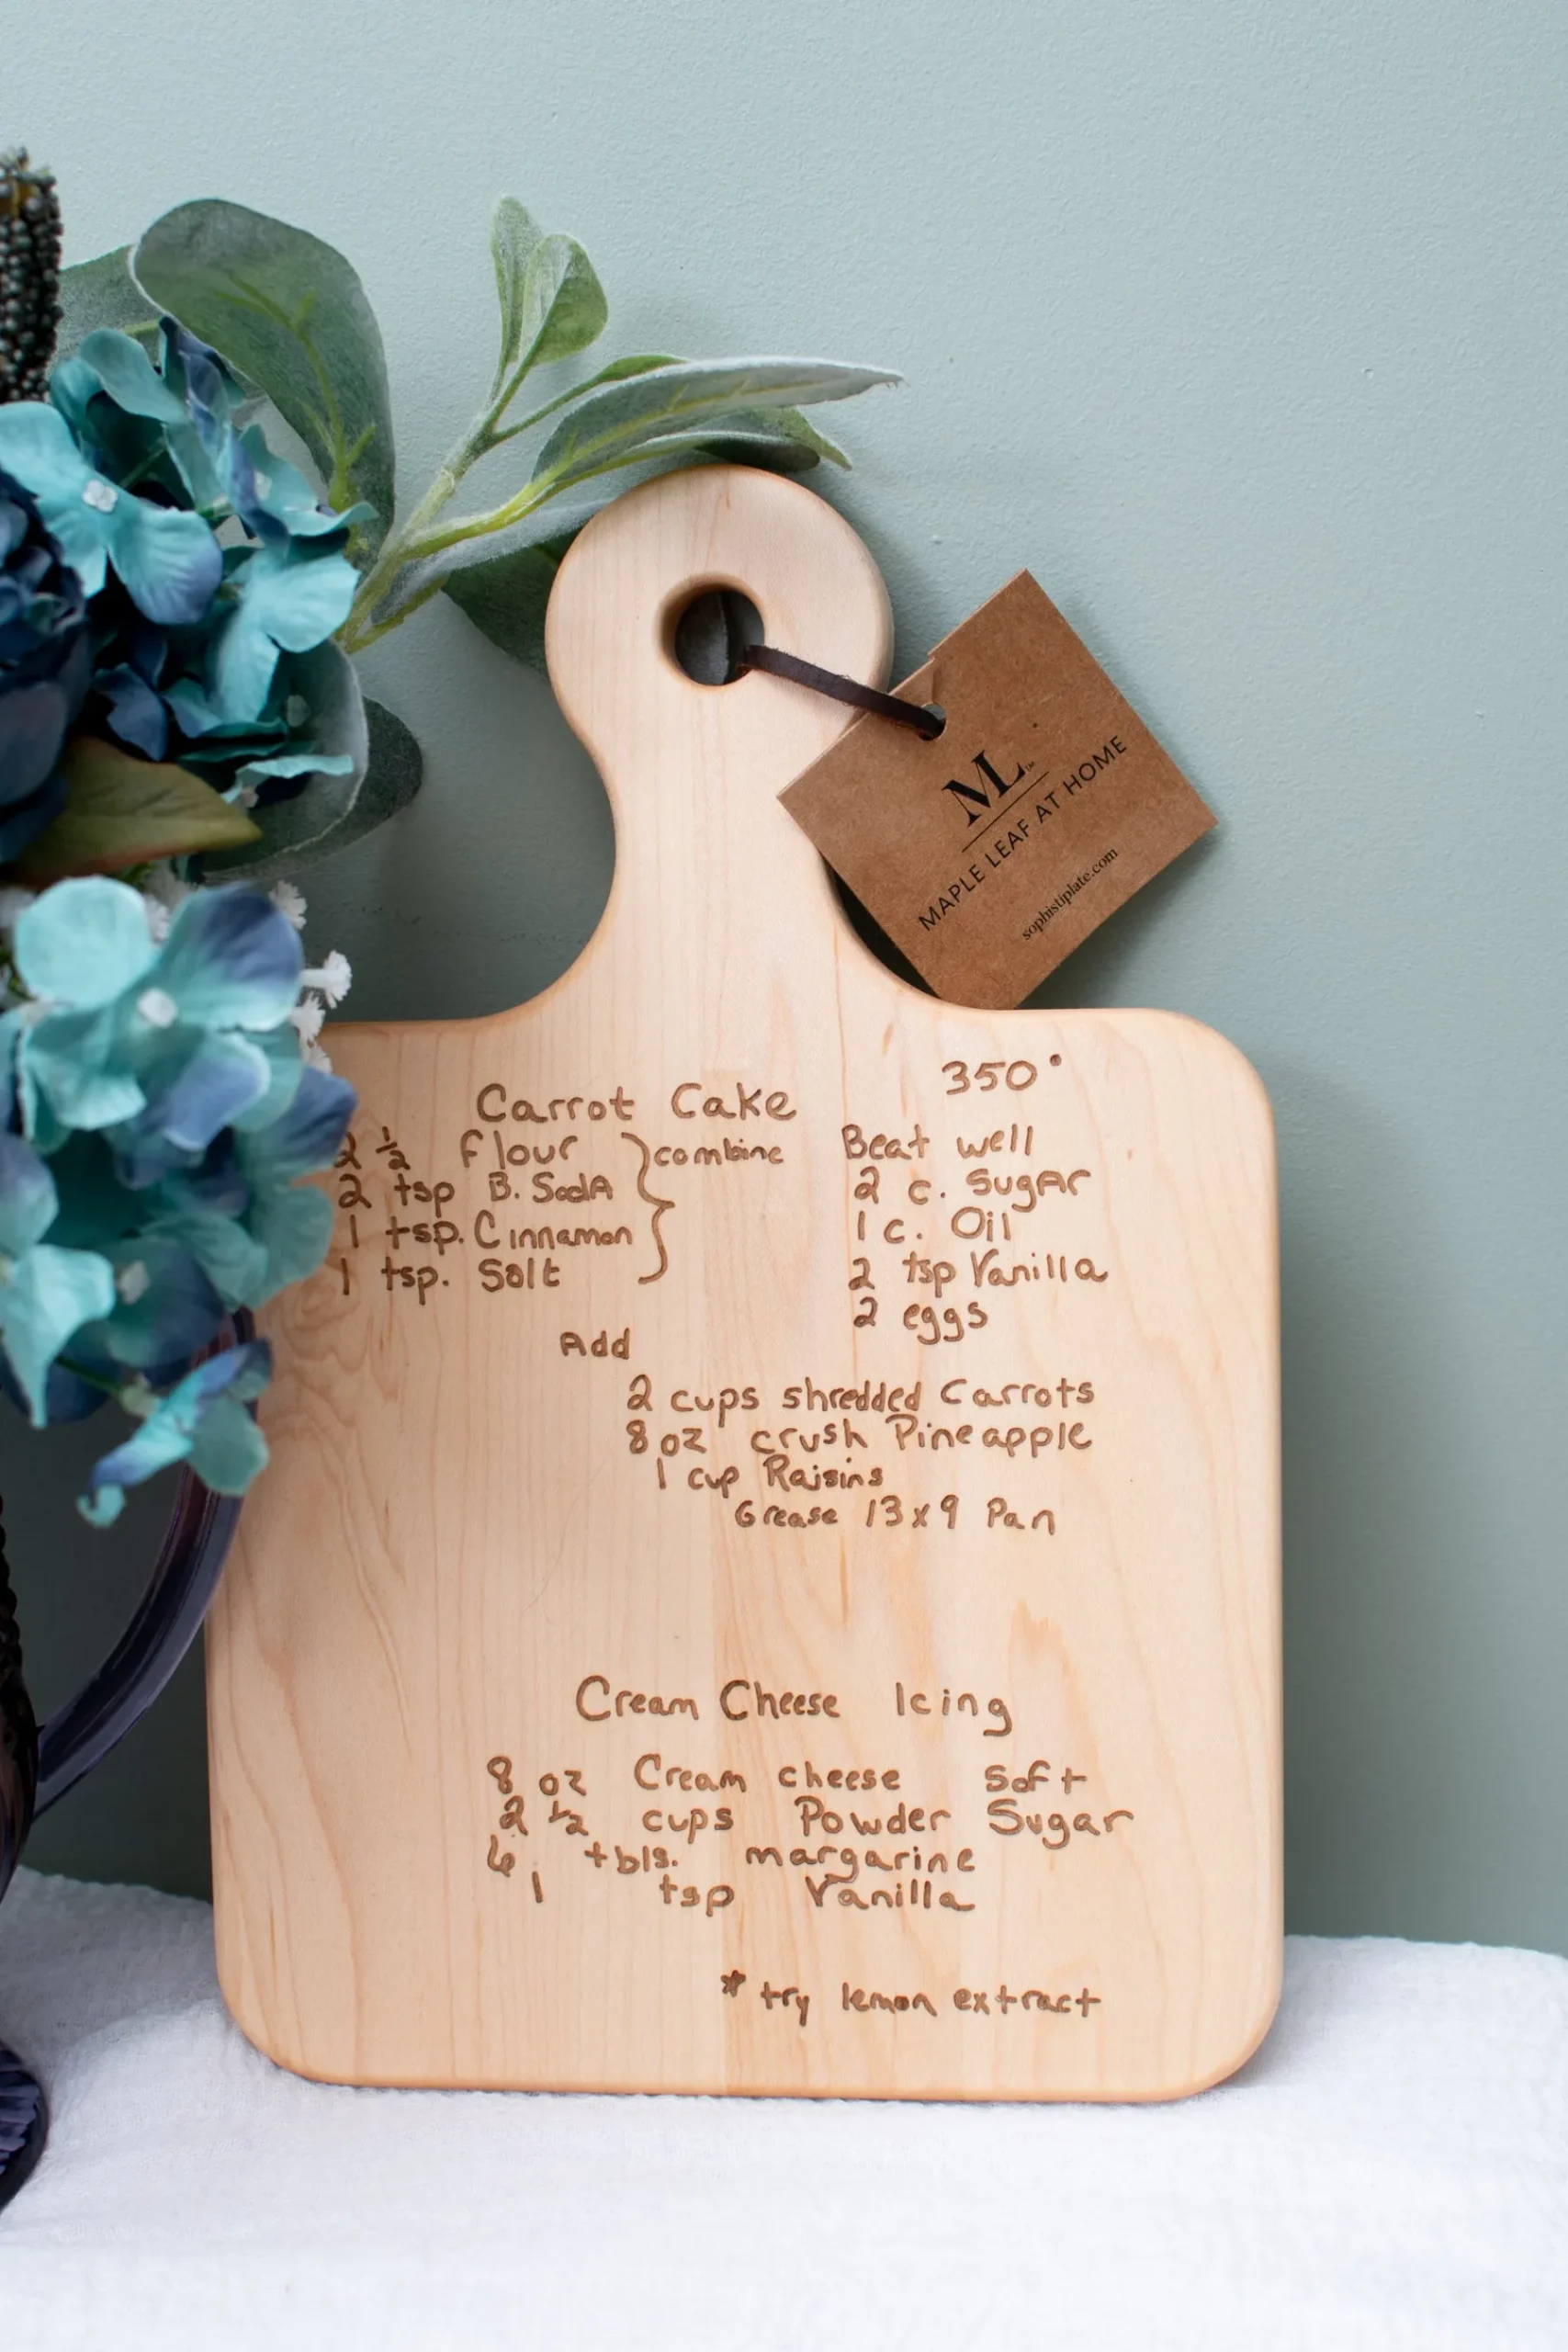 ML™
MAPLE LEAF AT HOME
sophistiplate.com
350°
Carrot Cake
2 ½ flour
2 tsp B. SodA
1 tsp. Cinnamon
1 tsp. Salt
combine
Beat well
2 c. SugAr
1 c. Oil
2 tsp Vanilla
2 eggs
Add
2 cups shredded Carrots
8 oz crush Pineapple
1 cup Raisins
Grease 13x9 Pan
Cream Cheese Icing
8 oz Cream cheese Soft
2 ½ cups Powder Sugar
6 tbls. margarine
1 tsp Vanilla
* try lemon extract